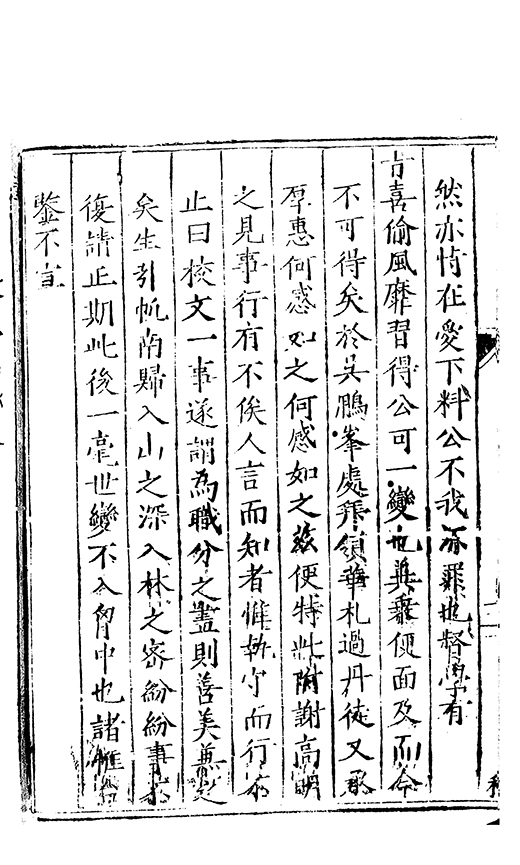 然亦恃在愛下料公不我深罪也督學有
古喜偷風靡習得公可一變也與乘便面及而今
不可得矣於吳鵬峯處拜領華札過丹徒又承
厚惠何感如之何感如之茲便特此附謝高明
之見事行有不俟人言而知者惟執守而行不
止曰校文一事遂謂為職分之盡則善美兼
矣生引帆南歸入山之深入林之密紛紛事
復請正期此後一毫世變不入胸中也諸惟
鑒不宣